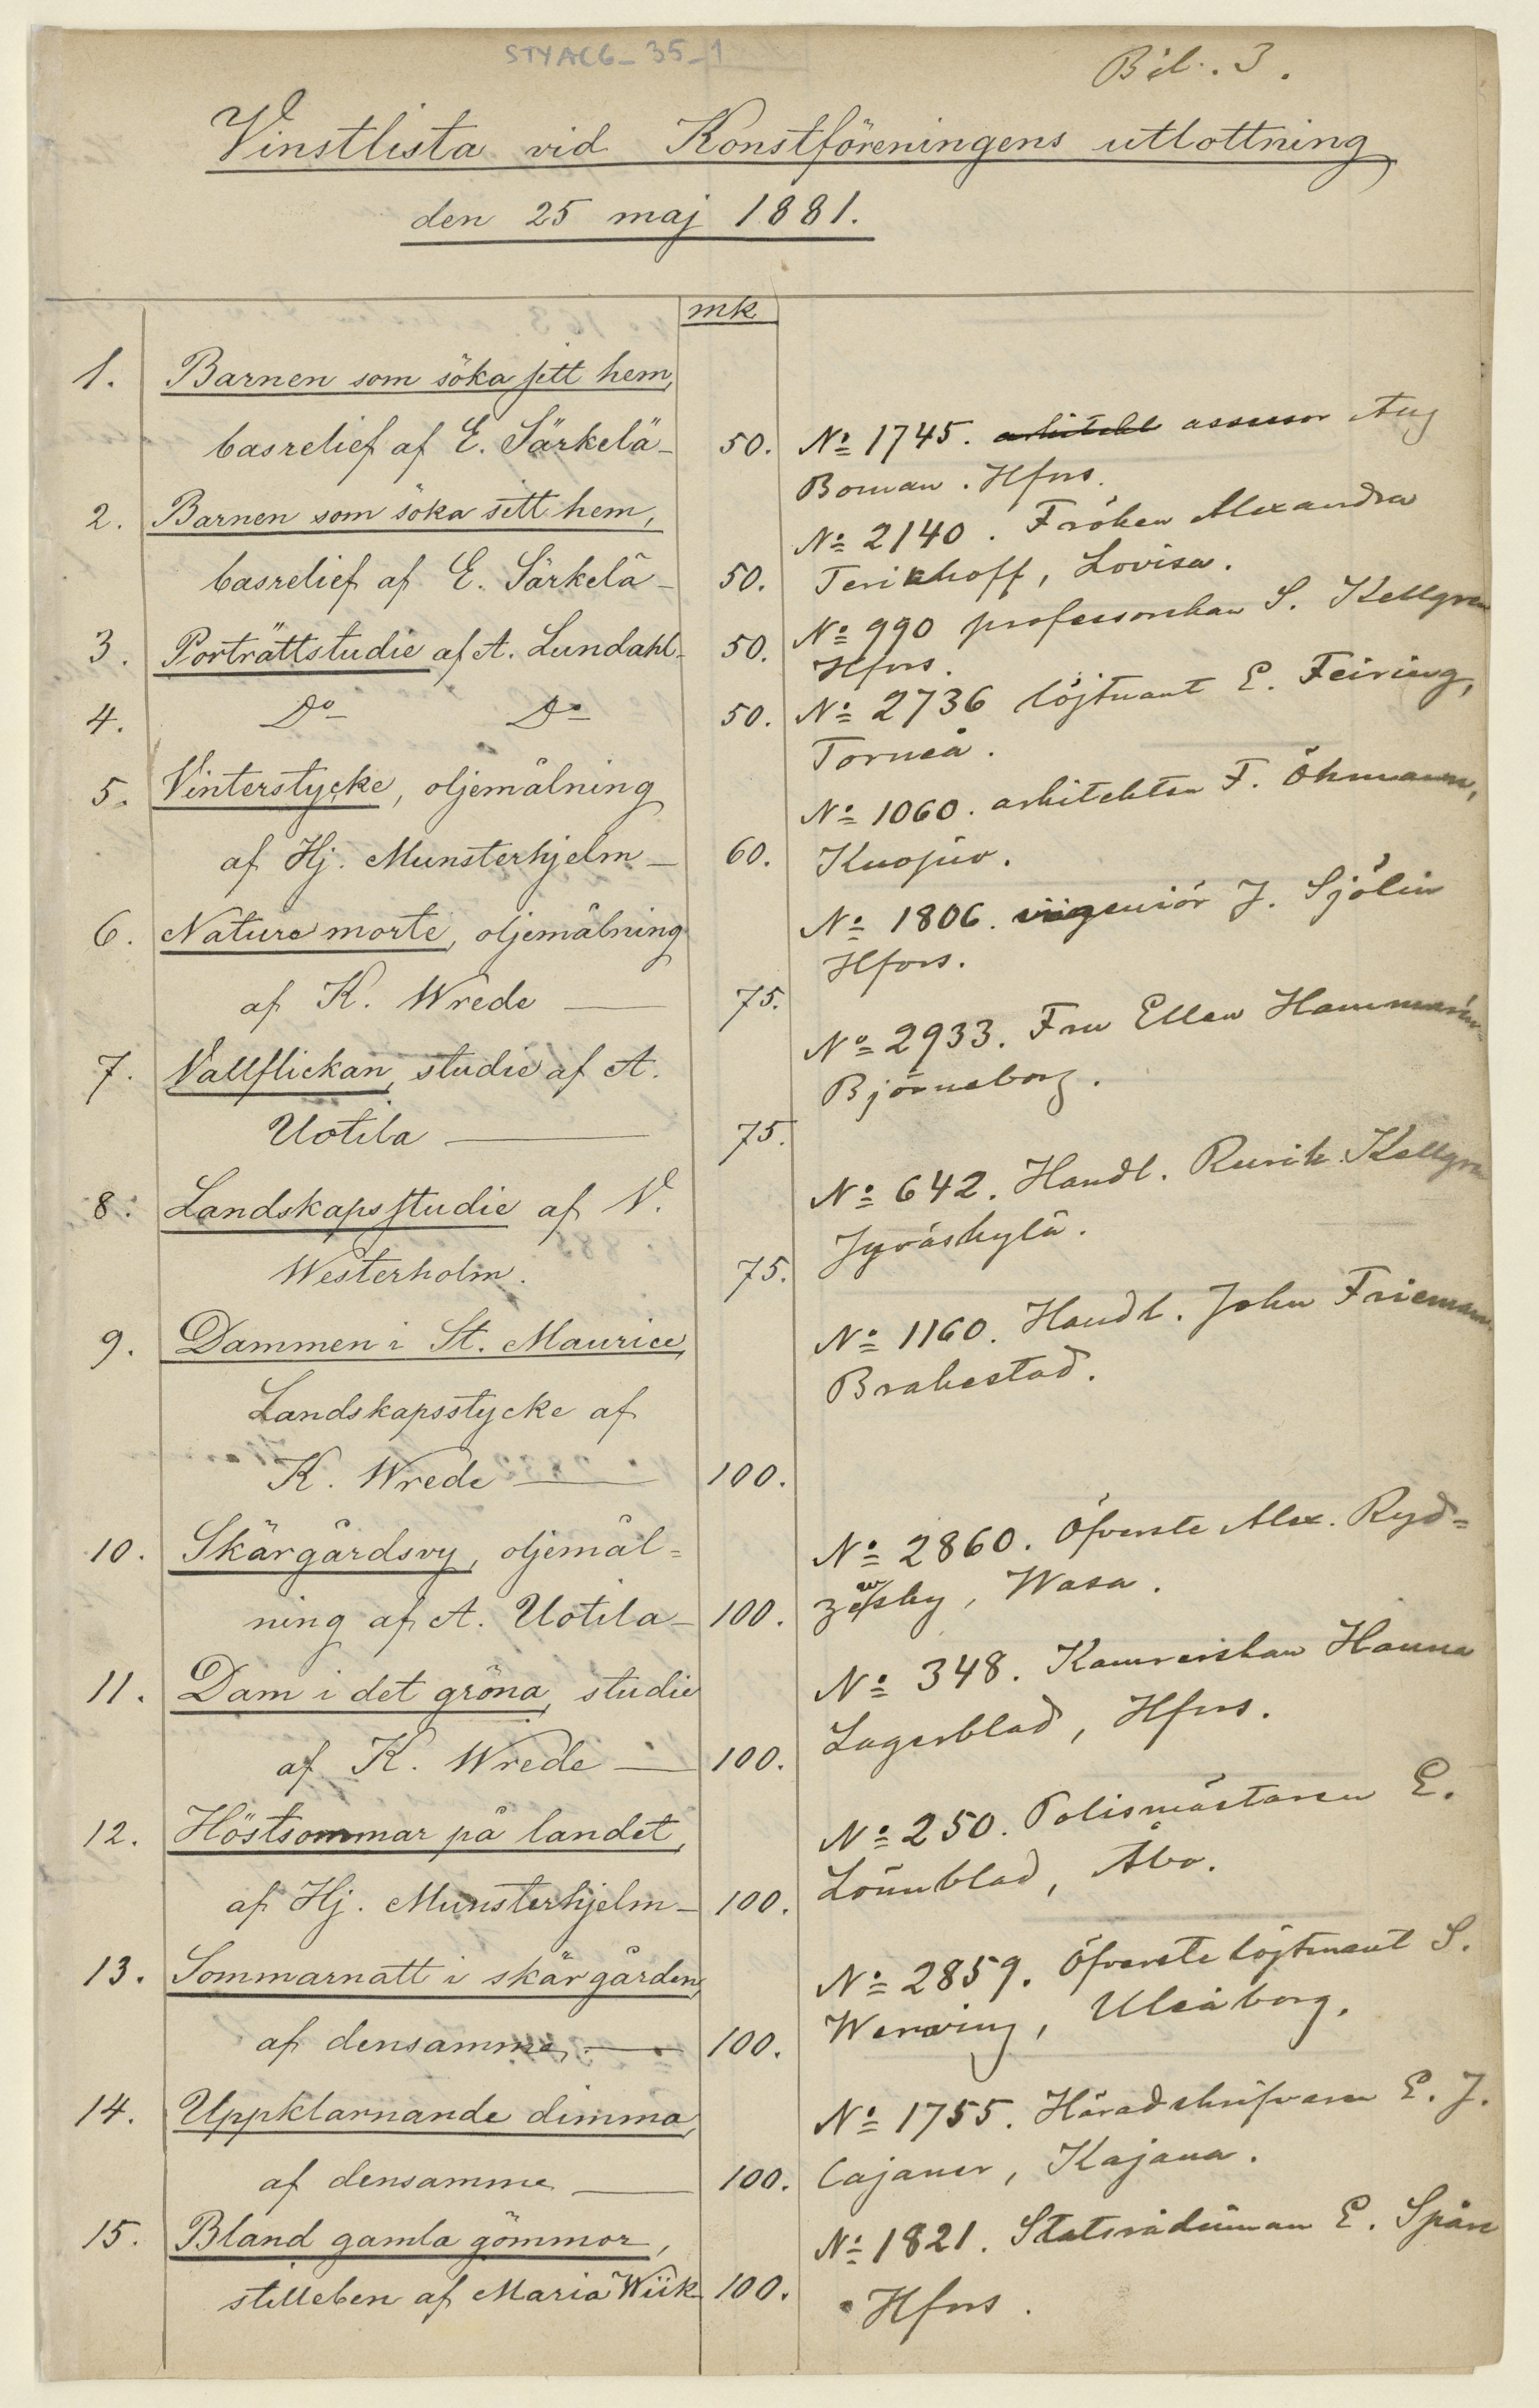 STYAC6_35_1
Bil. 3.
Vinstlista vid Konstföreningens utlottning
den 25 maj 1881.
mk
1. Barnen som söka sitt hem,
basrelief af E. Särkelä 50. No 1745. arkitekt assessor Aug
Boman. Hfors.
2. Barnen som söka sitt hem,
No 2140. Fröken Alexandra
basrelief af E. Särkelä 50. Terikhoff, Lovisa.
3. Porträttstudie af A. Lundahl 50. No 990 professorskan S. Kellgren
Hfors.
4. Do Do 50. No 2736 löjtnant E. Feiring,
Torneå.
5. Vinterstycke, oljemålning
No 1060. arkitekten F. Öhmann,
af Hj. Munsterhjelm 60. Kuopio.
6. Nature morte, oljemålning No 1806. ingeniör J. Sjölin
Hfors.
af K. Wrede 75.
7. Vallflickan, studie af A. No 2933. Fru Ellen
Björneborg.
Uotila 75.
8. Landskapsstudie af V. No 642. Handl. Rurik Kellgren
Jyväskylä.
Westerholm. 75.
9. Dammen i St. Maurice, No 1160. Handl. John Friemann
Landskapsstycke af Brahestad.
K. Wrede 100.
10. Skärgårdsvy, oljemål= No 2860. Öfverste Alex. Ryd=
ning af A. Uotila 100. zewsky, Wasa.
11. Dam i det gröna, studie No 348. Kamrerskan Hanna
af K. Wrede 100. Lagerblad, Hfors.
12. Höstsommar på landet, No 250. Polismästaren E.
af Hj. Munsterhjelm 100. Lönnblad, Åbo.
13. Sommarnatt i skärgården, No 2859. Öfverstelöjtnant S.
af densamme 100. Wenning, Uleåborg.
14. Uppklarnande dimma, No 1755. Häradskrifvaren E. J.
af densamme 100. Cajaner, Kajana.
15. Bland gamla gömmor, No 1821. Statsrådinnan E. Spåre
stilleben af Maria Wiik 100. Hfors.